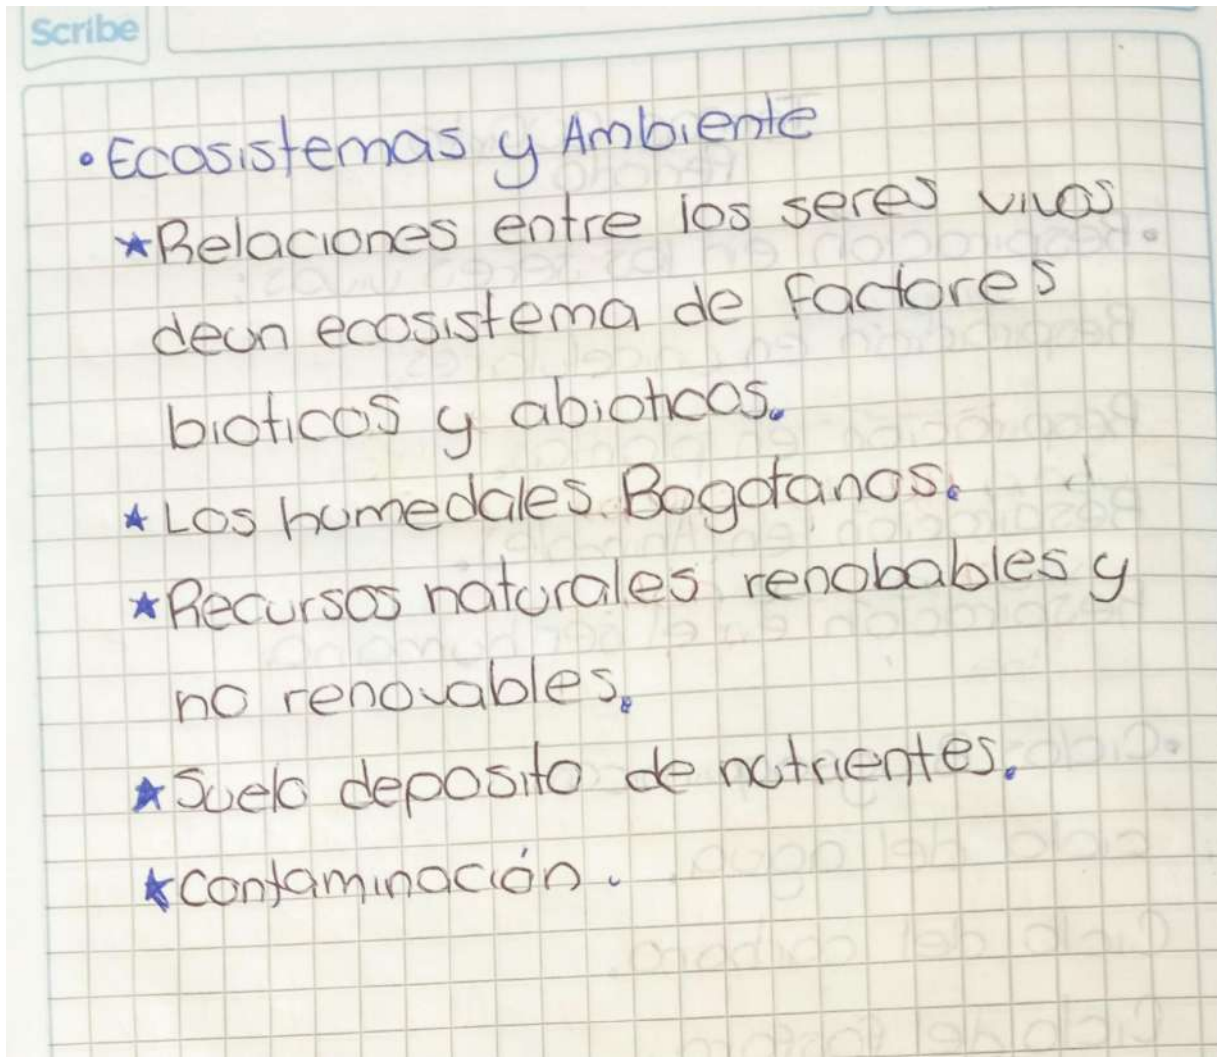 Scribe
• Ecosistemas y Ambiente
★ Relaciones entre los seres vivos
deun ecosistema de factores
bioticos y abioticos.
★ Los humedales Bogotanos.
★ Recursos naturales renobables y
no renovables.
★ Suelo deposito de nutrientes.
★ contaminación.